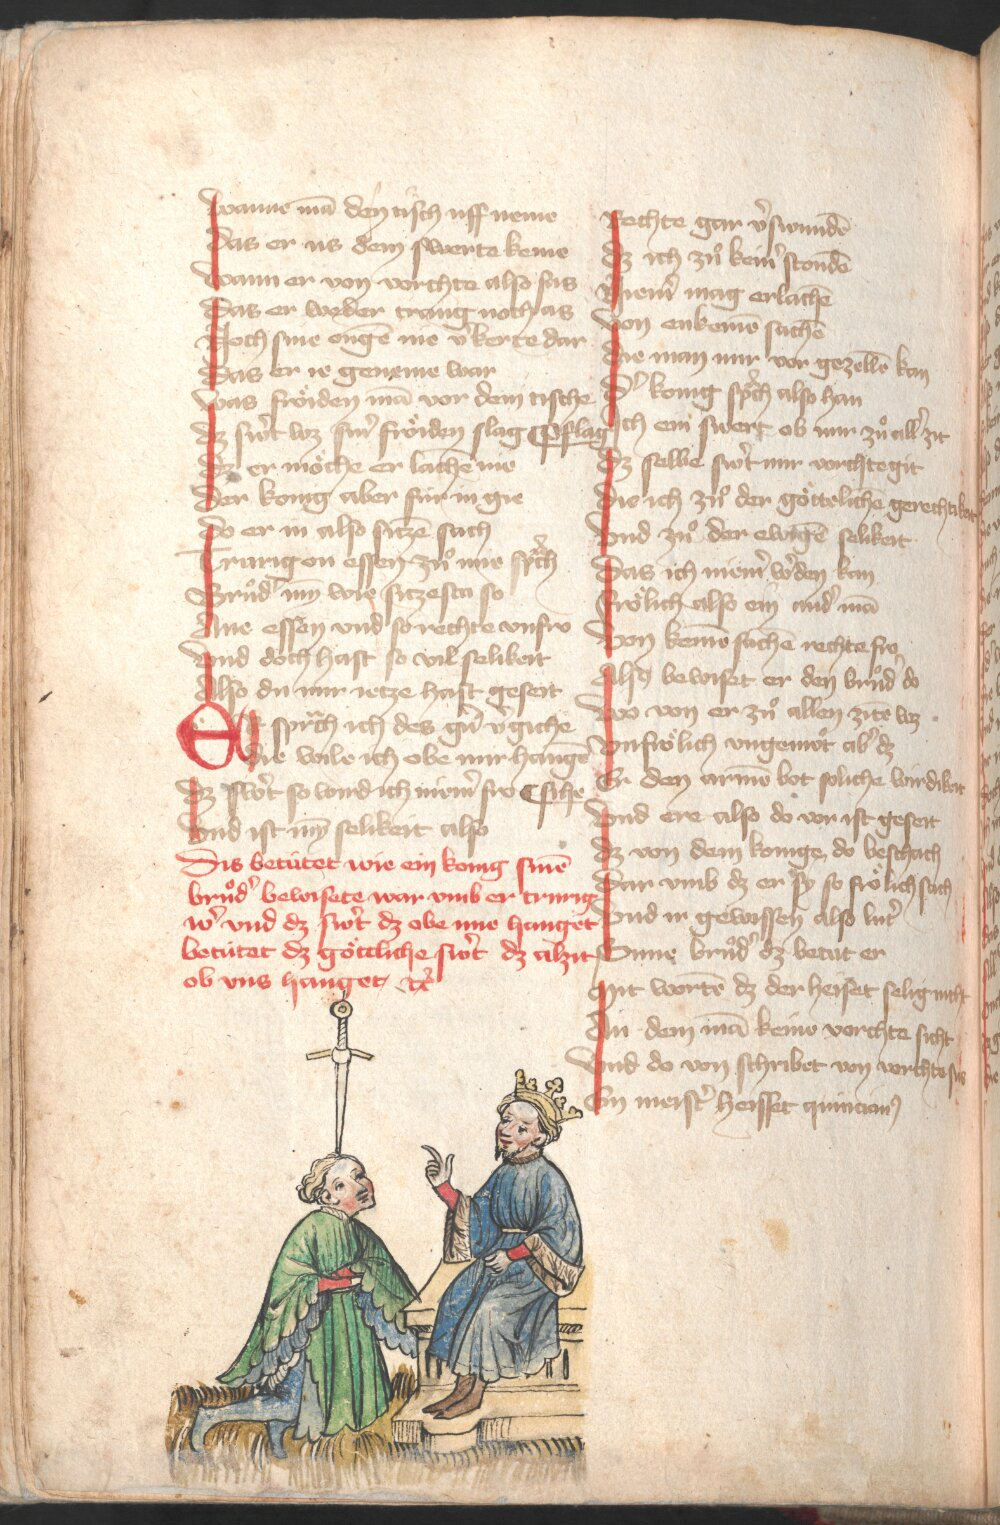 Wanne mā den tisch uff neme
Das er us dem swerte keme
Wann er von vorchte also sas
Das er weder trang noch as
Noch sine ougē nie v̓kerte dar
Das er ie geneme war
Was froͤiden mā vor dem tische
dz sw̓t wz sin̓ froͤiden slag pflag
dz er moͤchte er lachē nie
Der konig aber fur in gie
do er in also sitzē sach
Trurig on essen zuͦ ime sp̓ch
Bruͦd̓ min wie sitzestu so
Ane essen vnd so rechte vnfro
Vnd doch hast so vil selikeit
Also du mir ietze hast geseit
Er sprach ich des guͦ v̓giche
die wile ich obe mir hangē
dz sw̓t so wird ich niem̓ fro sihe
Vnd ist min selikeit also
Dis betutet wie ein konig sinē
bruͦd̓ bewisete war vmb er trurig
w̓ vnd dz sw̓t dz obe ime hanget
betutet dz goͤttliche sw̓t dz alzit
ob vns hanget
Rechte gar v̓swundē
dz ich zuͦ kein̓ stondē
Niem̓ mag erlachē
Von enkeinē sachē
die man mir vor gezellē kan
D̓ konig sp̓ch also han
Ich ein swert ob mir zuͦ all̓ zit
dz selbe sw̓t mir vorchte git
die ich zuͦ der goͤttelichē gerechtikeit
Vnd zuͦ der ewigē selikeit
Das ich niem̓ w̓den kan
froͤlich also ein and̓ mā
Von keinē sachē rechte fro
Also bewiset er den bruͦd̓ do
Wo von er zuͦ allen zitē wz
Vnfroͤlich vngemuͦt ab̓ dz
Er den armē bot soliche wirdikeit
Vnd ere also do vor ist geseit
dz von dem konige do beschach
Dar vmb dz er sy so froͤlich sach
Vnd ir gewissen also lut̓
Sinne bruͦd̓ dz betut er
Mit wortē dz der heiset selig nicht
An dem mā keine vorchte sicht
Vnd do von schribet von vorchte sus
Ein meist̓ heisset quincian̓